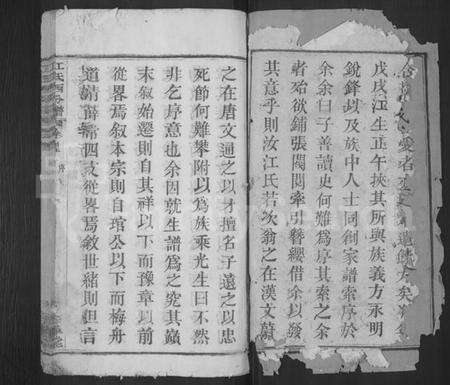 戊戌江生正午挾其所與族義方永明
銳鋒以及族中人士同衘家譜索序於
余余曰子善讀史何難爲序其索之余
者殆欲鋪張閥閱牽引簪纓借余以發
其意乎則汝江氏若次翁之在漢文蔚
之在唐文通之以才擅名子遠之以忠
死節何難攀附以爲族乘光生曰不然
非乞序意也余因就生譜爲之究其巔
末叙始遷則自其祥以下而豫章以前
從畧焉叙本宗則自琯公以下而梅舟
道靖薛霈四支從畧焉敘世緒則但言